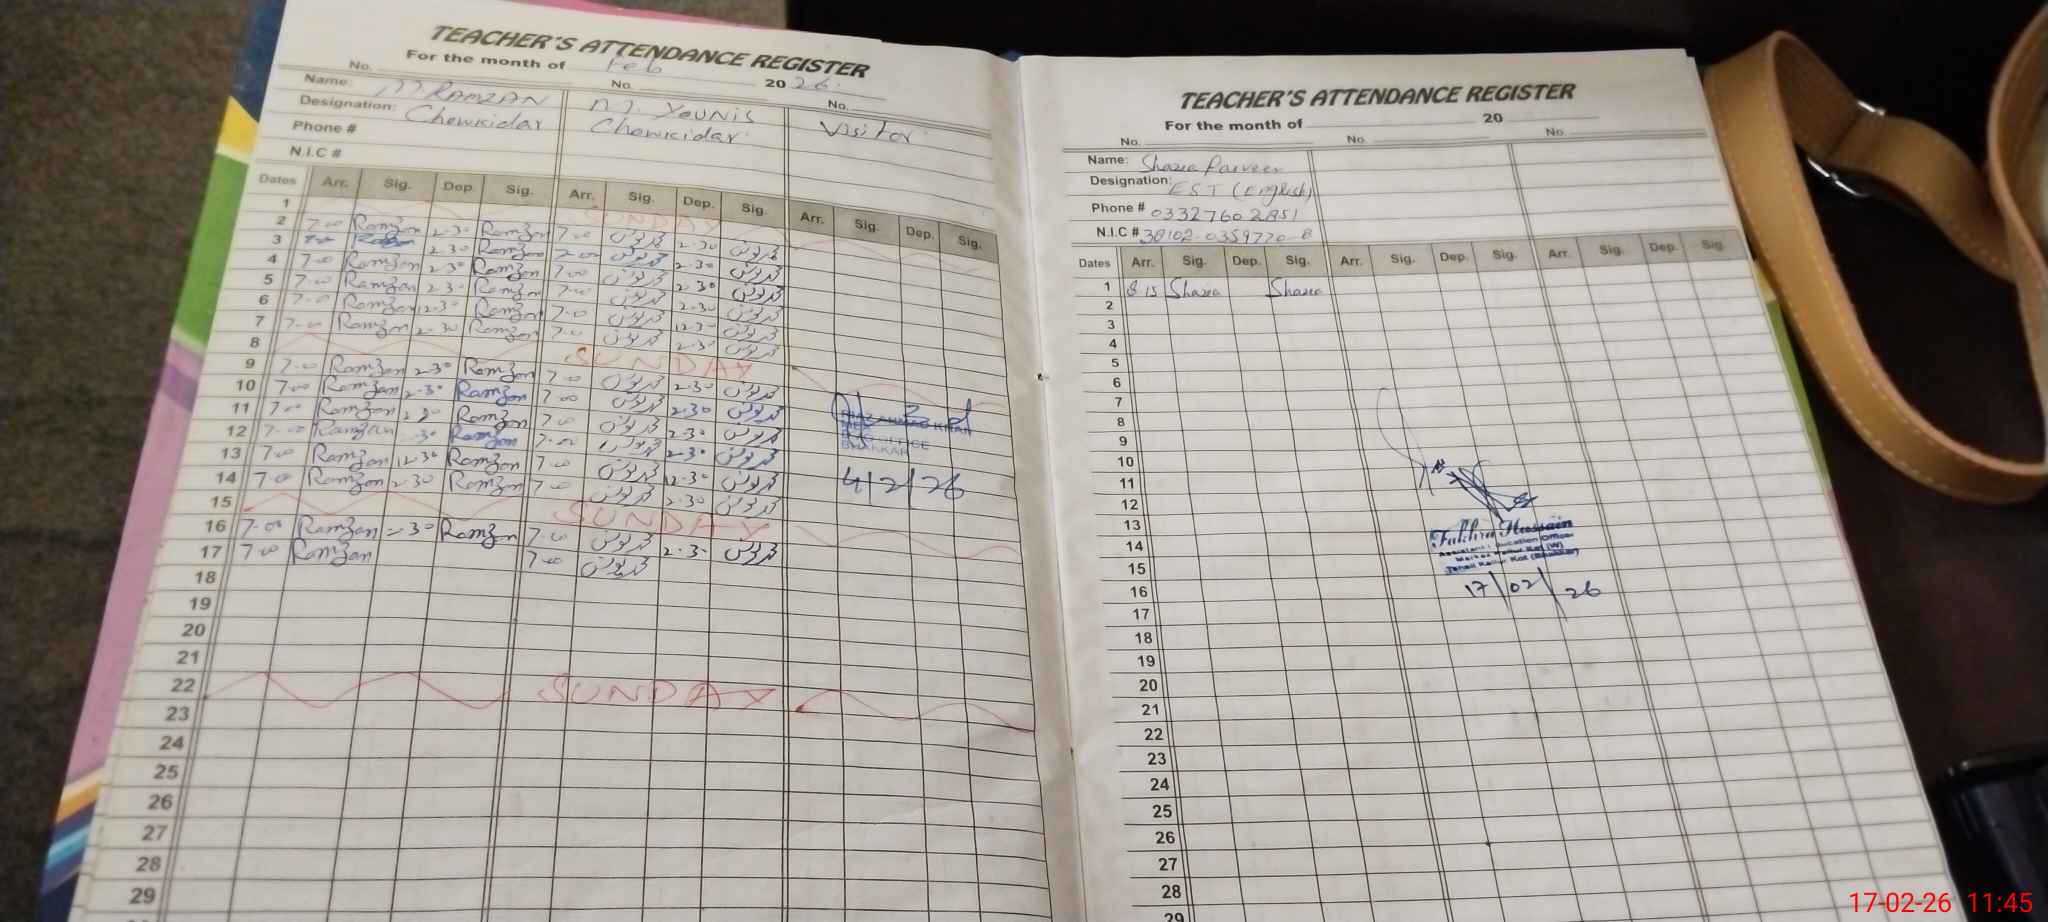 TEACHER'S ATTENDANCE REGISTER
For the month of Feb 2026
No. No. No.
Name: M RAMZAN M. YOUNIS Visitor
Designation: Chowkidar Chowkidar
Phone #
N.I.C #
Dates Arr. Sig. Dep. Sig. Arr. Sig. Dep. Sig. Arr. Sig. Dep. Sig.
1 SUNDAY
2 7-00 Ramzan 2-30 Ramzan 7-00 محمد یونس 2-30 محمد یونس
3 2-30 Ramzan 7-00 محمد یونس 2-30 محمد یونس
4 7-00 Ramzan 2-30 Ramzan 7-00 محمد یونس 2-30 محمد یونس
5 7-00 Ramzan 2-30 Ramzan 7-00 محمد یونس 2-30 محمد یونس
6 7-00 Ramzan 12-30 Ramzan 7-00 محمد یونس 12-30 محمد یونس
7 7-00 Ramzan 2-30 Ramzan 7-00 محمد یونس 2-30 محمد یونس
8 SUNDAY
9 7-00 Ramzan 2-30 Ramzan 7-00 محمد یونس 2-30 محمد یونس
10 7-00 Ramzan 2-30 Ramzan 7-00 محمد یونس 2-30 محمد یونس
11 7-00 Ramzan 2-30 Ramzan 7-00 محمد یونس 2-30 محمد یونس
12 7-00 Ramzan Ramzan 7-00 محمد یونس 2-30 محمد یونس
13 7-00 Ramzan 12-30 Ramzan 7-00 محمد یونس 12-30 محمد یونس
14 7-00 Ramzan 2-30 Ramzan 7-00 محمد یونس 2-30 محمد یونس
15 SUNDAY
16 7-00 Ramzan 2-30 Ramzan 7-00 محمد یونس 2-30 محمد یونس
17 7-00 Ramzan 7-00 محمد یونس
18
19
20
21
22 SUNDAY
23
24
25
26
27
28
29
KHAN
OFFICE
BHAKKAR
4/2/26
TEACHER'S ATTENDANCE REGISTER
For the month of 20
No. No. No.
Name: Shazia Parveen
Designation: EST (English)
Phone # 03327602851
N.I.C # 38102-0359770-8
Dates Arr. Sig. Dep. Sig. Arr. Sig. Dep. Sig. Arr. Sig. Dep. Sig.
1 8-15 Shazia Shazia
2
3
4
5
6
7
8
9
10
11
12
13
14
15
16
17
18
19
20
21
22
23
24
25
26
27
28
29
Hussain
Assistant Education Officer
17/02/26
17-02-26 11:45